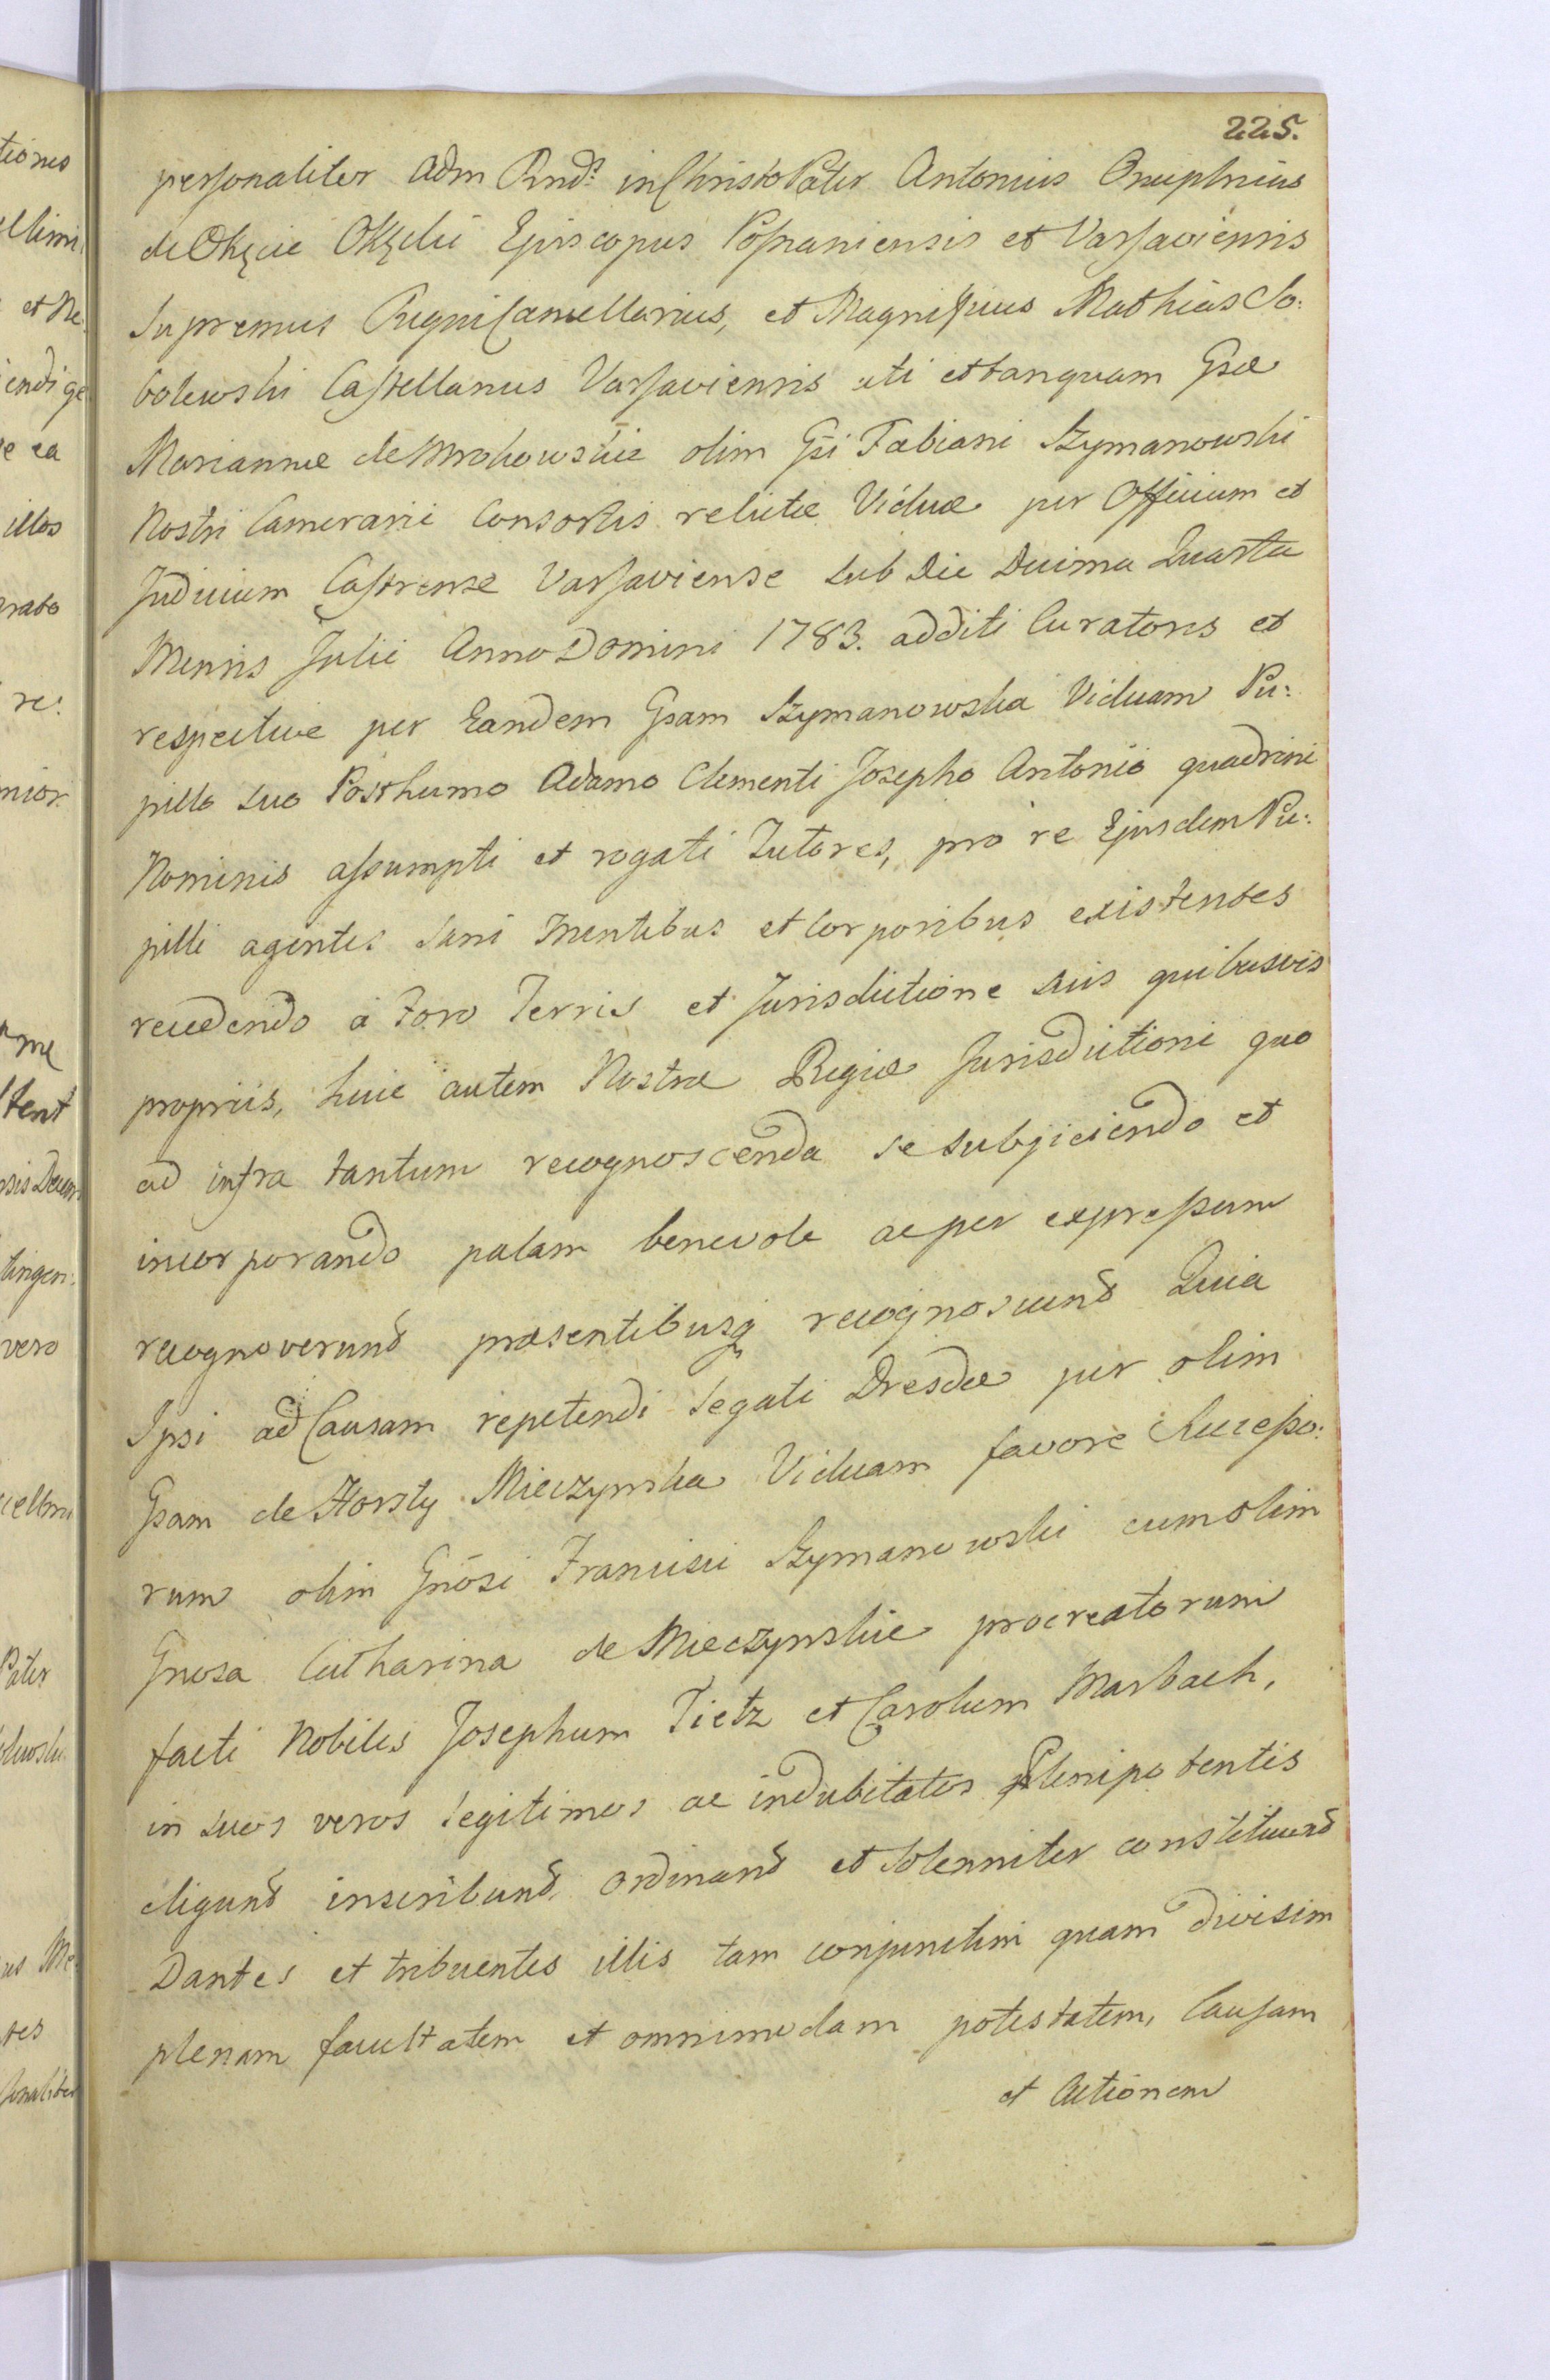 225.
personaliter Adm Rnds in Christo Pater Antonius Onuphrius
de Okęcie Okęcki Episcopus Posnaniensis et Varsaviensis
Supremus Regni Cancellarius, et Magnificus Mathias So:
bolewski Castellanus Varsaviensis uti et tanquam Gsæ
Mariannæ de Mrokowskie olim Gsi Fabiani Szymanowski
Nostri Camerarii Consortis relictæ Viduæ per Officium et
Judicium Castrense Varsaviense sub Die Decima Quarta
Mensis Julii Anno Domini 1783. additi Curatores et
respective per Eandem Gsam Szymanowska Viduam Pu:
pillo suo Posthumo Adamo Clementi Josepho Antonio quadrini
Nominis assumpti et rogati Tutores, pro re Ejusdem Pu:
pilli agentes sani Mentibus et Corporibus existentes
recedendo à Foro Terris et Jurisdictione suis quibusvis
propriis, huic autem Nostræ Regiæ Jurisdictioni quo
ad infra tantum recognoscenda se subjiciendo et
incorporando palam benevole ac per expressum
recognoverunt præsentibusq recognoscunt Quia
Ipsi ad Causam repetendi Legati Dresdæ per olim
Gsam de Horsty Mieczynska Viduam favore Successo:
rum olim Gnosi Francisci Szymanowski cum olim
Gnosa Catharina de Mieczynskie procreatorum
facti Nobiles Josephum Tietz et Carolum Marbach,
in suos veros legitimos ac indubitatos Plenipotentes
eligunt inscribunt ordinant et Solenniter constituunt
Dantes et tribuentes illis tam conjunctim quam divisim
plenam facultatem et omnimodam potestatem, Causam
et Actionem
tiones
ellimi
et Ne
iendi ge
e ea
illos
rato
re:
nior
tent
sis Decem
tingen:
vero
Pater
olewski
us Me
tes
sonaliter